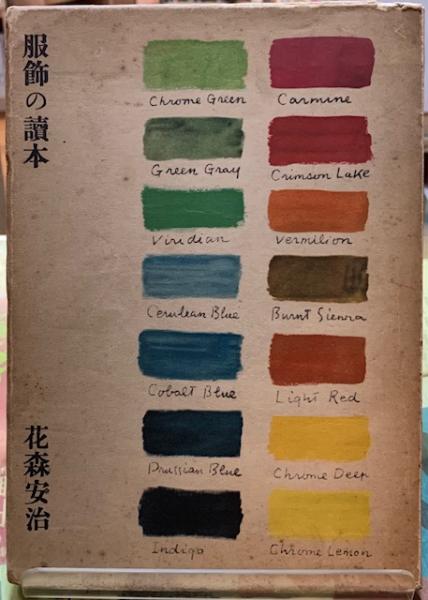 服飾の讀本
花森安治
Chrome Green
Carmine
Green Gray
Crimson Lake
Viridian
Vermilion
Cerulean Blue
Burnt Sienna
Cobalt Blue
Light Red
Prussian Blue
Chrome Deep
Indigo
Chrome Lemon